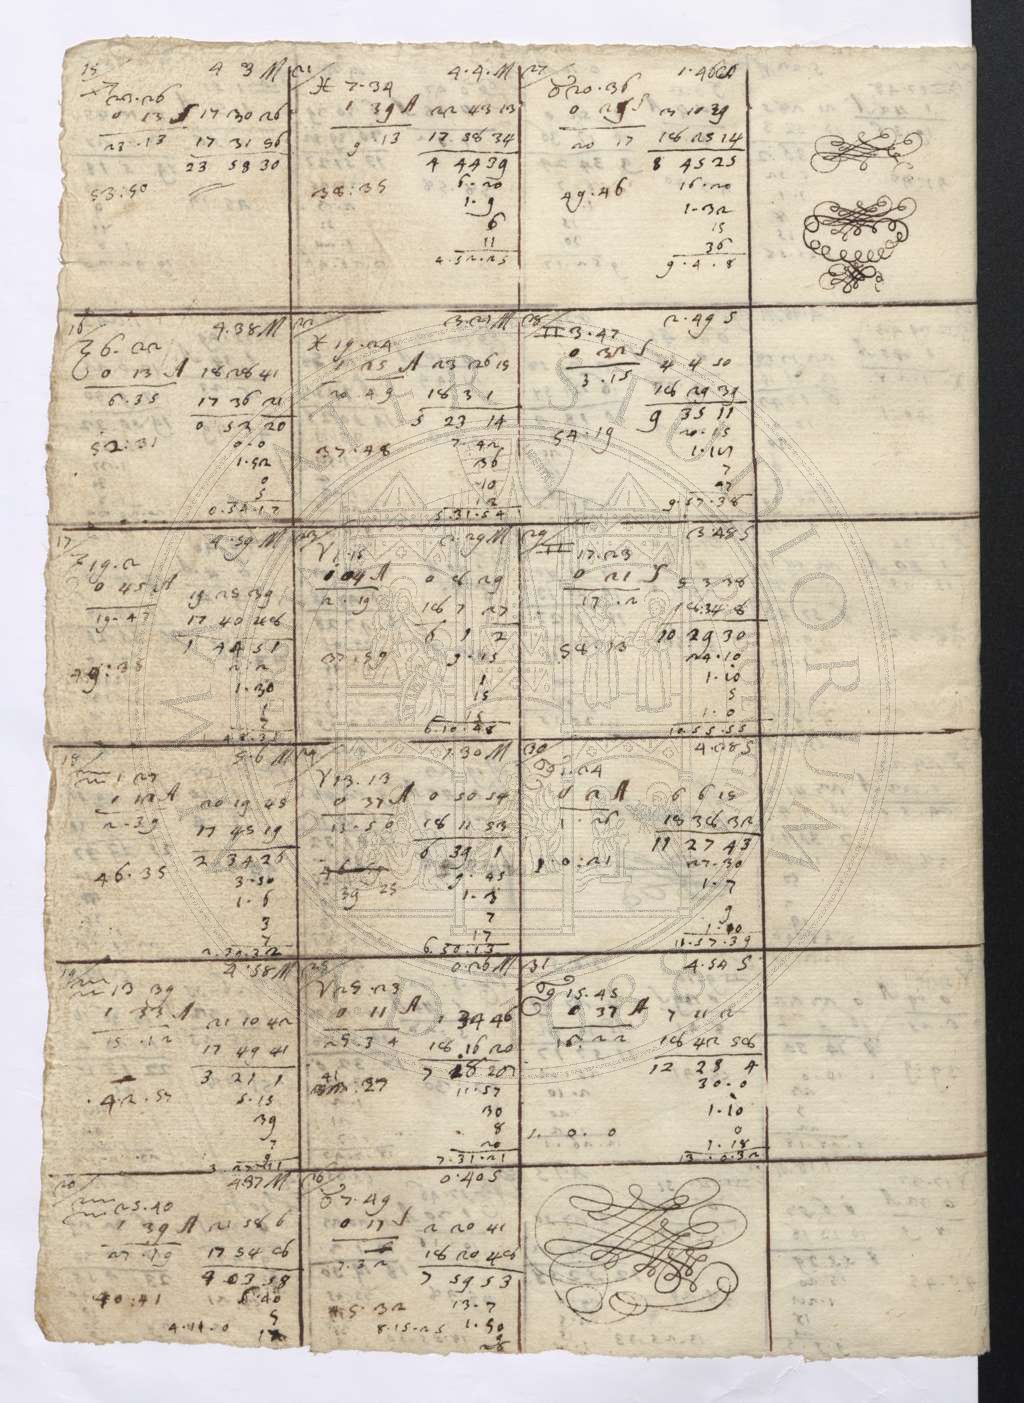 15 4 3 M
♐ 22.26
0 13 S 17 30 26
22.13 17 31 56
23 58 30
53:50
16 4.38 M
♑ 6.22
0 13 A 18 28 41
6.35 17 36 21
0 52 20
52:31 0.0
1.52
0
5
0.54.17
17 4.59 M
♑ 19.2
0 45 A 19 25 39
19.47 17 40 48
1 44 51
49:35 2.2
1.30
1
7
18 5.6 M
♒ 1 27
1 12 A 20 19 45
2.39 17 45 19
2 34 26
46.35 3.50
1.6
3
7
2.39.32
19 4.58 M
♒ 13 39
1 33 A 21 10 42
15.12 17 49 41
3 21 1
42.57 5.15
39
7
9
20 4.37 M
♒ 25.40
1 39 A 21 58 6
27.19 17 54 08
4 03 58
40:41 5.40
5
4.11.0 12
21 4.4.M
♓ 7.34
1 39 A 22 43 13
9.13 17 58 34
4 44 39
38:35 6.20
1.9
6
11
4.52.25
22 3.21 M
♓ 19.24
1 25 A 23 26 15
20.49 18 3 1
5 23 14
37.48 7.42
36
10
12
5.31.54
23 2.29 M
♈ 1.15
1 04 A 0 8 29
2.19 18 7 27
6 1 2
37.59 9.15
1
15
15
6.10.48
24 1.30 M
♈ 13.13
0 37 A 0 50 54
13.50 18 11 53
6 39 1
39 25 9.45
1.3
7
17
6.50.13
25 0.26 M
♈ 25 23
0 11 A 1 34 46
25.34 18.16 20
7 18 26
41:27 11.57
30
8
20
7.31.21
26 0.40 S
♉ 7.49
0 17 S 2 20 41
7.32 18 20 48
7 59 53
45.32 13.7
8.15.25 1.50
28
27
♉ 20.36
0 29 S 3 10 39
20 17 18 25 14
8 45 25
49:46 16.20
1.32
15
36
9.4.8
28 2.49 S
♊ 3.47
0 32 S 4 4 50
3.15 18 29 39
9 35 11
54.19 20.15
7
47
9.57.38
29 3 48 S
♊ 17.23
0 21 S 5 3 38
17.2 18 34 8
10 29 30
58.13 24.10
1.10
5
1.0
10.55.55
30 4.28 S
♋ 1.24
0 2 A 6 6 15
1.26 18 38 32
11 27 43
1.0:21 27.30
1.7
9
1.10
11.57.39
31 4.54 S
♋ 15.45
0 37 A 7 11 2
16.22 18 42 58
12 28 4
30.0
1.10
1.0.0 0
1.18
13.0.32